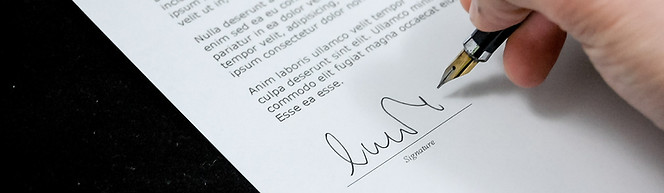 ipsum
velit ut in
Nulla deserunt a
enim sed ea eu con
pariatur in ea dolor ve
tempor velit, adipisicing,
ipsum consectetur dolor non
Anim laboris ullamco velit tempor
culpa deserunt sint elit. Ullamco minim
commodo elit fugiat magna occaecat ex
Esse ea esse.
Signature